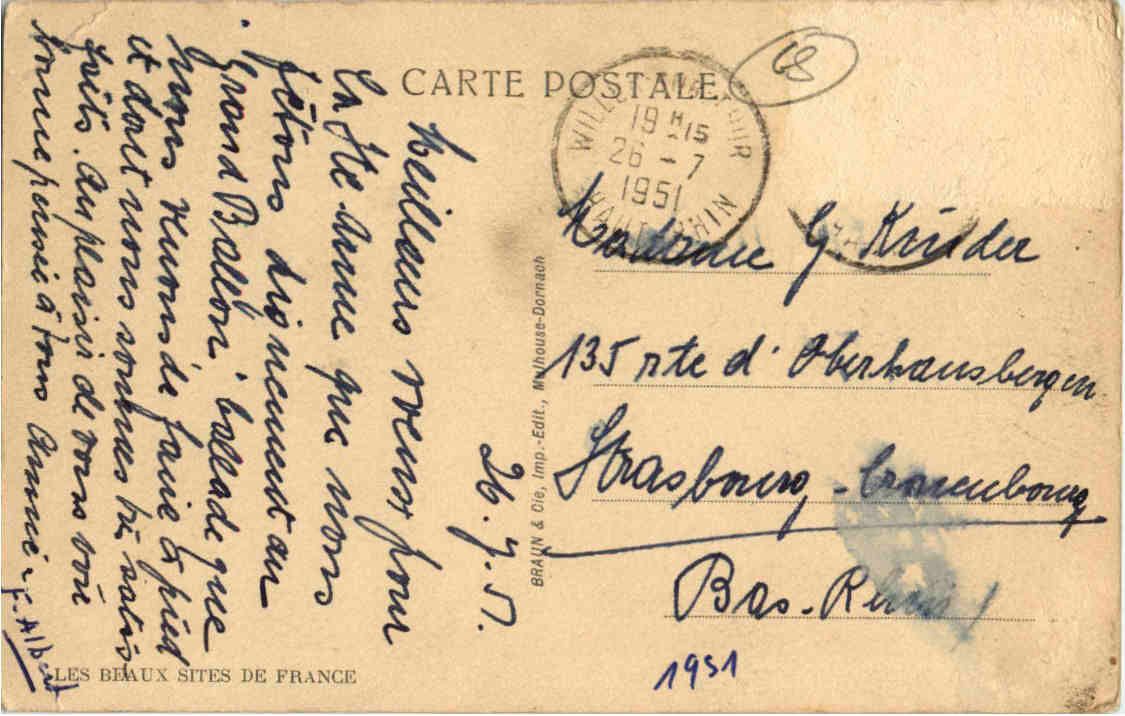 CARTE POSTALE
68
19 H 15
26 - 7
1951
HAUT RHIN
26.7.51.
Meilleurs vœux pour
la Ste Anne que nous
fêtons dignement au
Grand Ballon, ballade que
nous venons de faire à pied
et dont nous sommes très satis
faits. Au plaisir de vous voir
bonne pensée à tous Annie
F. Albert
LES BEAUX SITES DE FRANCE
BRAUN & Cie, Imp.-Edit., Mulhouse-Dornach
Madame G
135 rte d'Oberhausbergen
Strasbourg-Cronenbourg
Bas-Rhin
1951